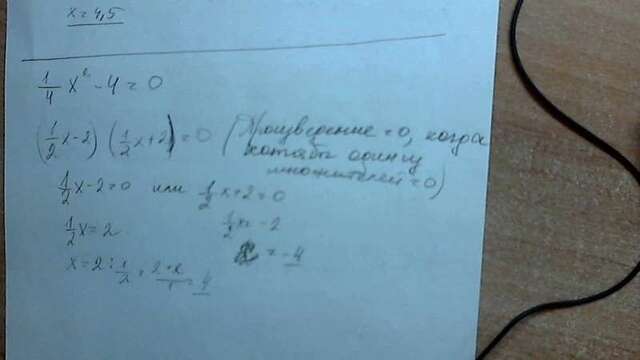 x = 4,5
1/4 x² - 4 = 0
(1/2 x - 2) (1/2 x + 2) = 0 (Произведение = 0, когда
хотябы один из
множителей = 0)
1/2 x - 2 = 0 или 1/2 x + 2 = 0
1/2 x = 2 1/2 x = -2
x = 2 : 1/2 = 2·2/1 = 4 = -4